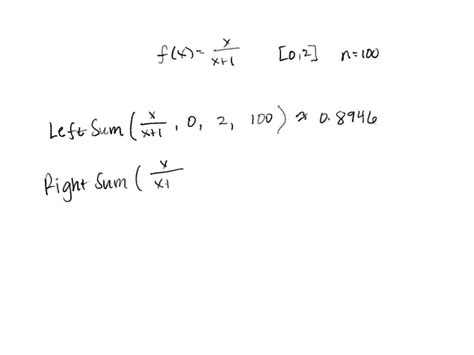 f(x) = x/(x+1) [0,2] n=100
Left Sum (x/(x+1), 0, 2, 100) ≈ 0.8946
Right Sum (x/(x+